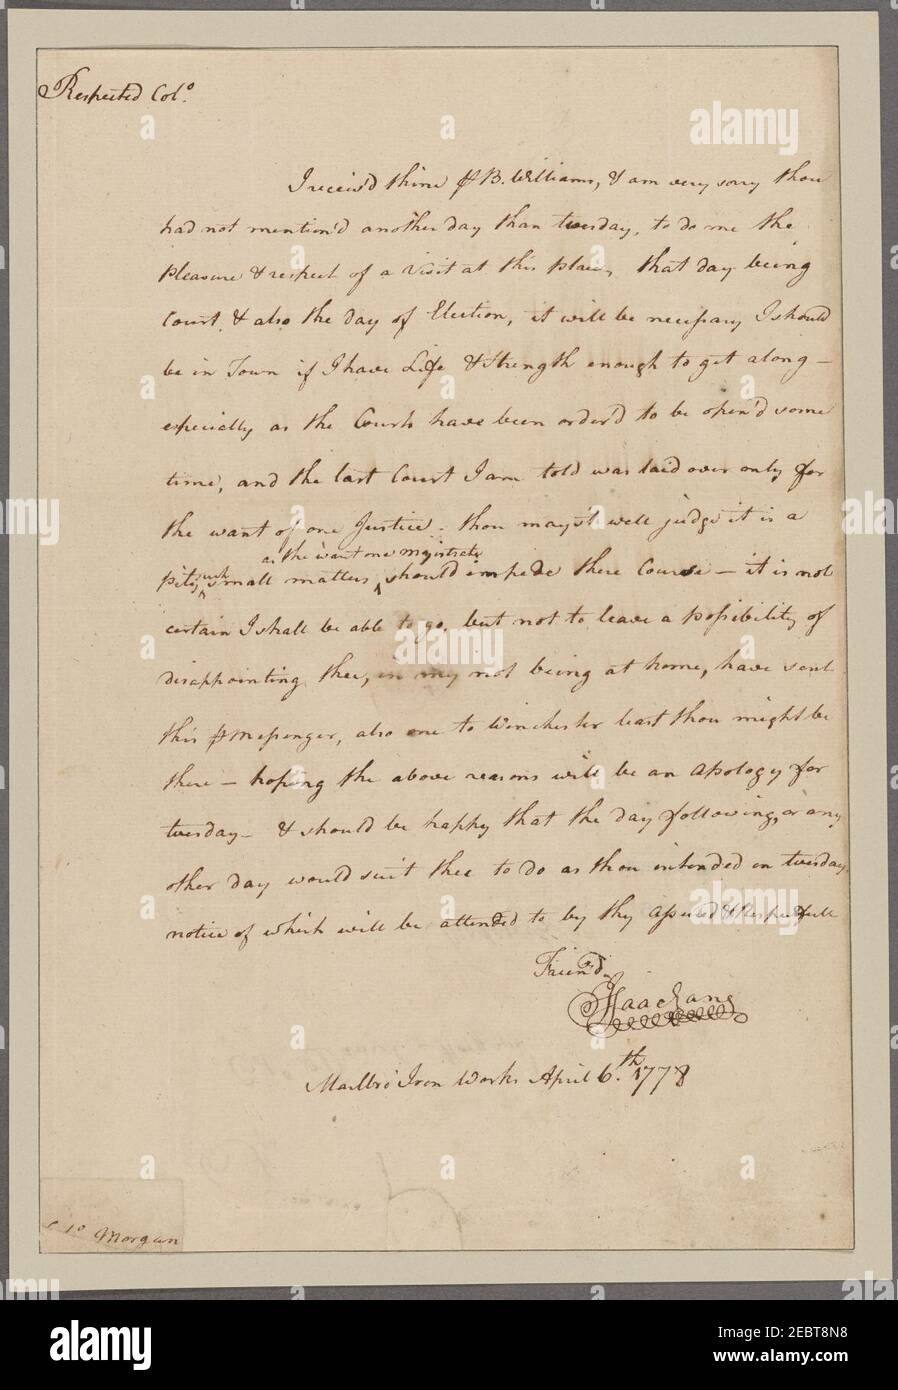 Respected Col.o
I receiv'd thine ⅌ B. Williams, & am very sorry thou
had not mention'd another day than tuesday, to do me the
pleasure & respect of a Visit at this place, that day being
Court, & also the day of Election, it will be necessary I should
be in Town if I have Life & Strength enough to get along –
especially as the Courts have been order'd to be open'd some
time, and the last Court I am told was laid over only for
the want of one Justice. thou may'st well judge it is a
as the want one majistrate
pity such small matters should impede there Course – it is not
certain I shall be able to go, but not to leave a possibility of
disappointing thee, in my not being at home, have sent
this ⅌ Messenger, also one to Winchester least thou might be
there – hoping the above reasons will be an apology for
tuesday – & should be happy that the day following, or any
other day would suit thee to do as thou intended on tuesday,
notice of which will be attended to by thy assured & Respectfull
Friend,
Isaac Zane
Marlbro' Iron Works April 6.th 1778
Morgan
alamy
Image ID: 2EBT8N8
www.alamy.com